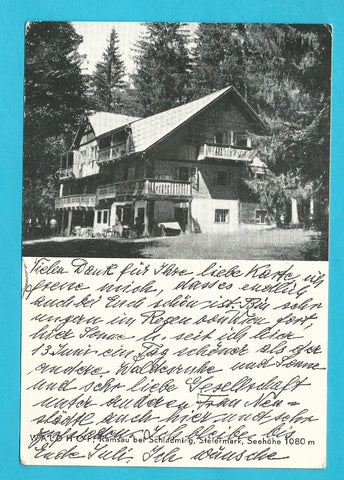 Vielen Dank für Ihre liebe Karte, ich
freue mich, dass es endlich
auch bei Euch schön ist. Bin sehr
ungern im Regen von Wien fort
hier Sonne u. seit ich hier
13 Juni ein Tag schöner als der
andere Waldesruhe und Sonne
und sehr liebe Gesellschaft
unter anderen Frau Neu-
städtl auch hier und sehr
WALDHOF, Ramsau bei Schladming, Steiermark, Seehöhe 1080 m
Ich bleibe bis
Ende Juli. Ich wünsche